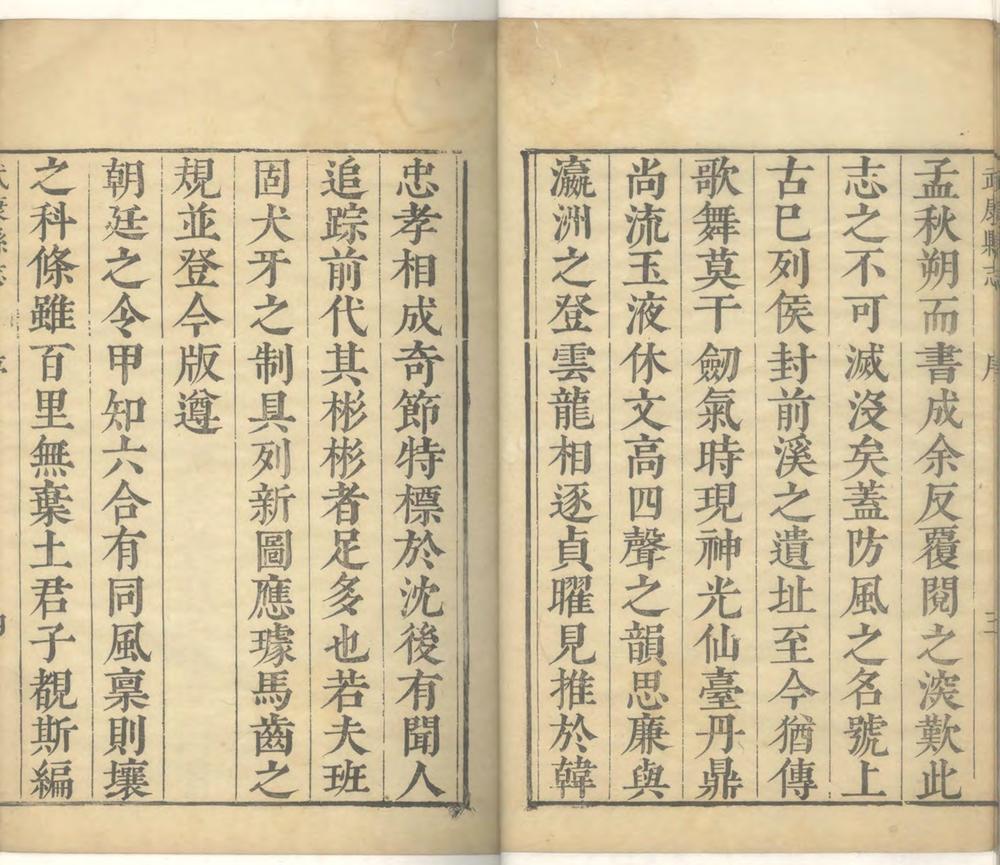 武康縣志
序
三
孟秋朔而書成余反覆閱之深歎此
志之不可滅沒矣蓋防風之名號上
古已列侯封前溪之遺址至今猶傳
歌舞莫干劒氣時現神光仙臺丹鼎
尚流玉液休文高四聲之韻思廉與
瀛洲之登雲龍相逐貞曜見推於韓
忠孝相成奇節特標於沈後有聞人
追踪前代其彬彬者足多也若夫班
固犬牙之制具列新圖應璩馬齒之
規並登今版遵
朝廷之令甲知六合有同風稟則壤
之科條雖百里無棄土君子覩斯編
武康縣志
序